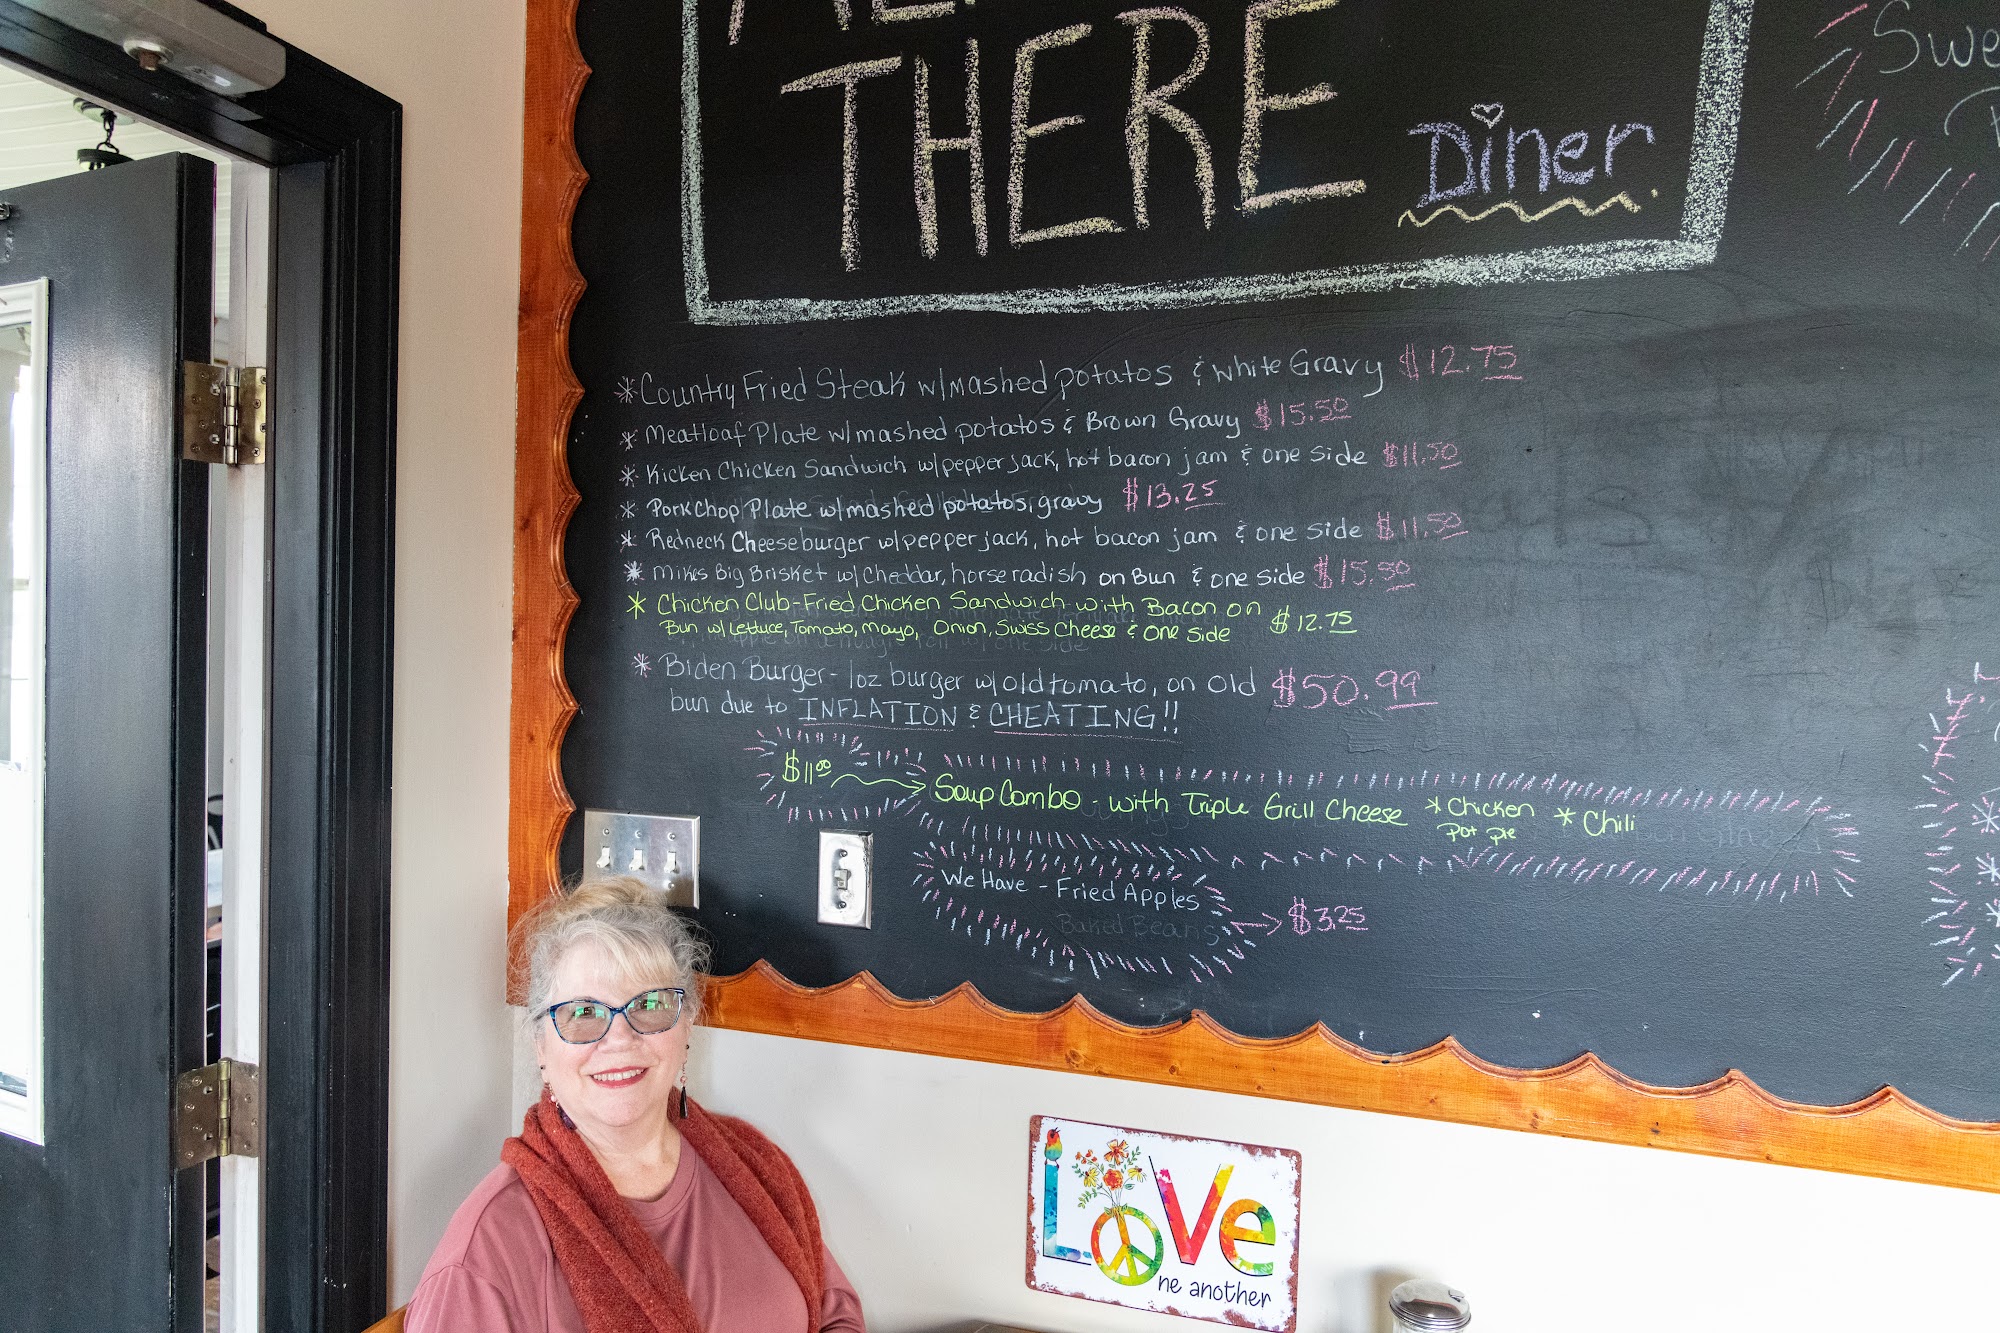 THERE
Diner
Swe
*Country Fried Steak w/mashed potatos & white Gravy $12.75
* Meatloaf Plate w/mashed potatos & Brown Gravy $15.50
* Kicken Chicken Sandwich w/pepper jack, hot bacon jam & one side $11.50
* Pork Chop Plate w/mashed potatos, gravy $13.25
* Redneck Cheeseburger w/pepper jack, hot bacon jam & one side $11.50
* Mikes Big Brisket w/ Cheddar, horseradish on Bun & one side $15.50
* Chicken Club-Fried Chicken Sandwich with Bacon on $12.75
Bun w/ Lettuce, Tomato, Mayo, Onion, Swiss Cheese & One Side
* Biden Burger - 1oz burger w/old tomato, on old $50.99
bun due to INFLATION & CHEATING!!
$11.00 Soup Combo - with Triple Grill Cheese * Chicken * Chili
Pot Pie
We Have - Fried Apples
Baked Beans $3.25
LOVe
ne another